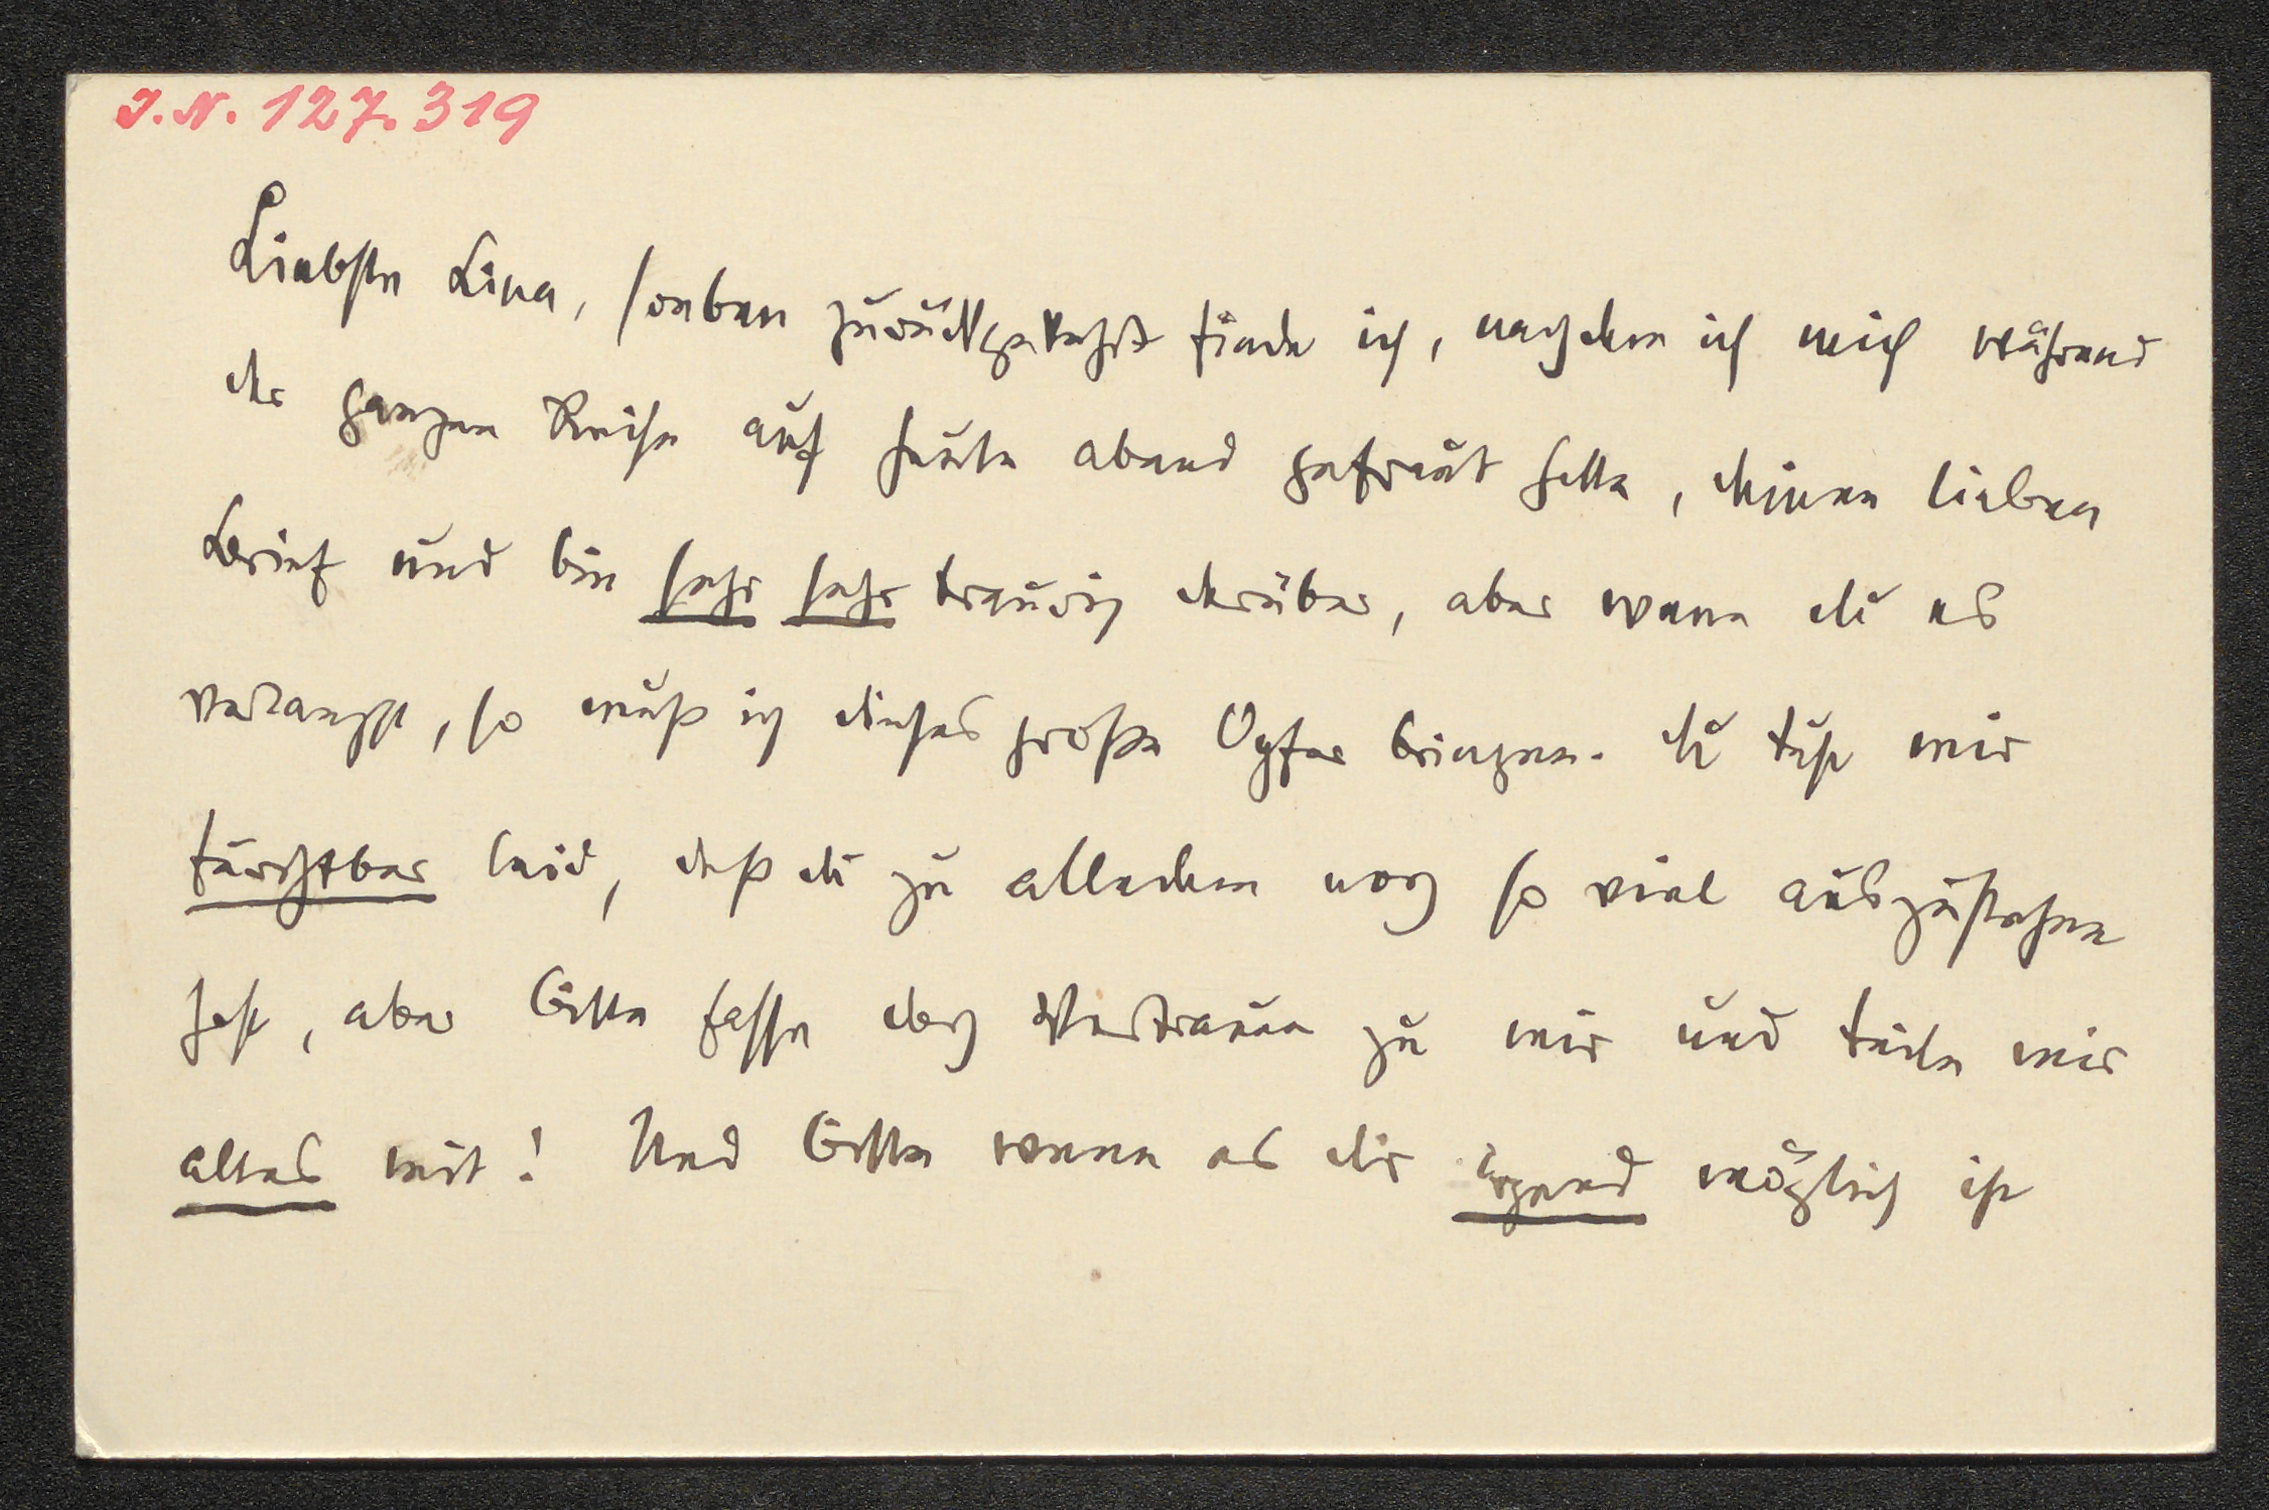 I.N. 127.319
Liebste Lina, soeben zurückgekehrt finde ich, nachdem ich mich während
der ganzen Reise auf heute abend gefreut hatte, deinen lieben
Brief und bin sehr sehr traurig darüber, aber wenn du es
verlangst, so muß ich dieses große Opfer bringen. du tust mir
furchtbar leid, daß du zu alledem noch so viel auszustehen
hast, aber bitte fasse doch Vertrauen zu mir und teile mir
alles mit! Und bitte wenn es dir irgend möglich ist